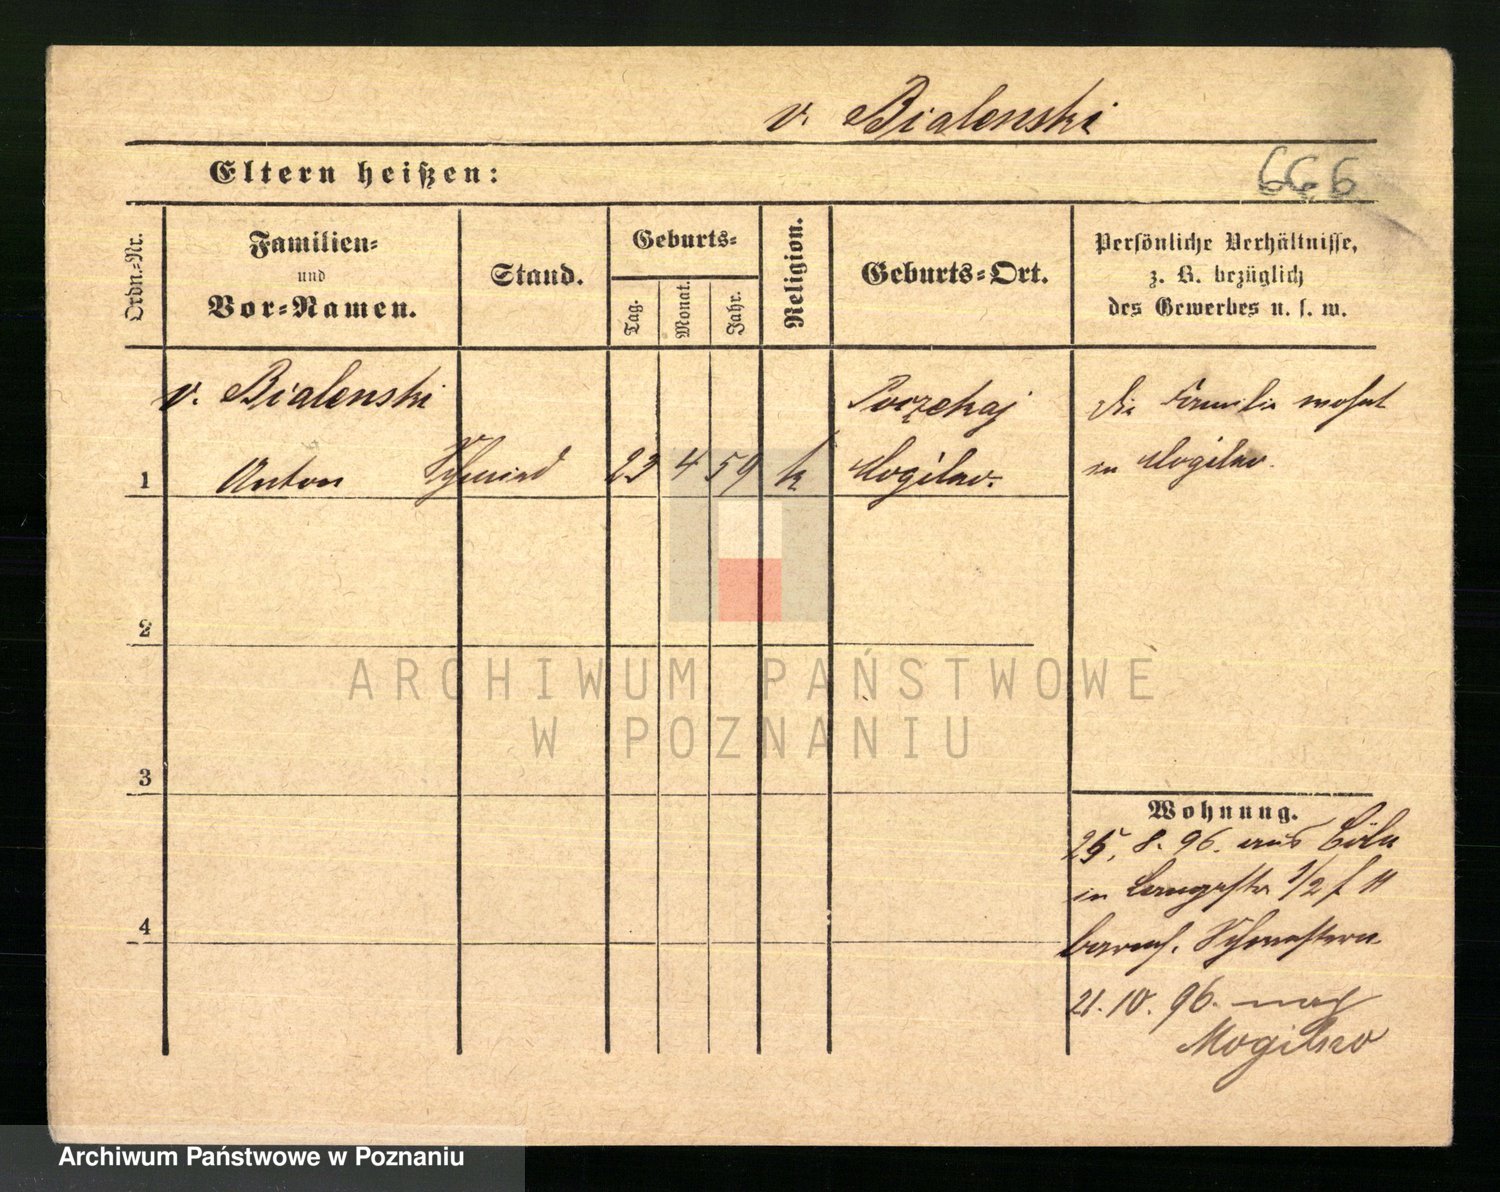 v. Bialenski
Eltern heißen:
666
Ordn.-Nr.
Familien-
und
Vor-Namen.
Stand.
Geburts-
Tag.
Monat.
Jahr.
Religion.
Geburts-Ort.
Persönliche Verhältnisse,
z. B. bezüglich
des Gewerbes u. s. w.
v. Bialenski
Anton
Schmied
23 4 59
k
Mogilno.
die Familie wohnt
in Mogilno.
1
2
3
4
Wohnung.
25. 8. 96. aus Cöln
in Langestr 1/2 f H
barmh. Schwestern
21. 10. 96. nach
Mogilno
ARCHIWUM PAŃSTWOWE
W POZNANIU
Archiwum Państwowe w Poznaniu